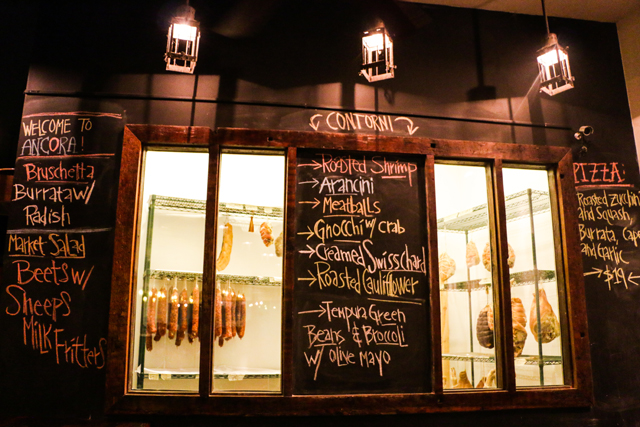 WELCOME TO
ANCORA!
Bruschetta
Burrata w/
Radish
Market Salad
Beets w/
Sheeps
Milk Fritters
CONTORNI
Roasted Shrimp
Arancini
Meatballs
Gnocchi w/ crab
Creamed Swiss chard
Roasted Cauliflower
Tempura Green
Beans & Broccoli
w/ OLIVE MAYO
PIZZA:
Roasted Zucchini
and Squash
Burrata,
and Garlic
$19